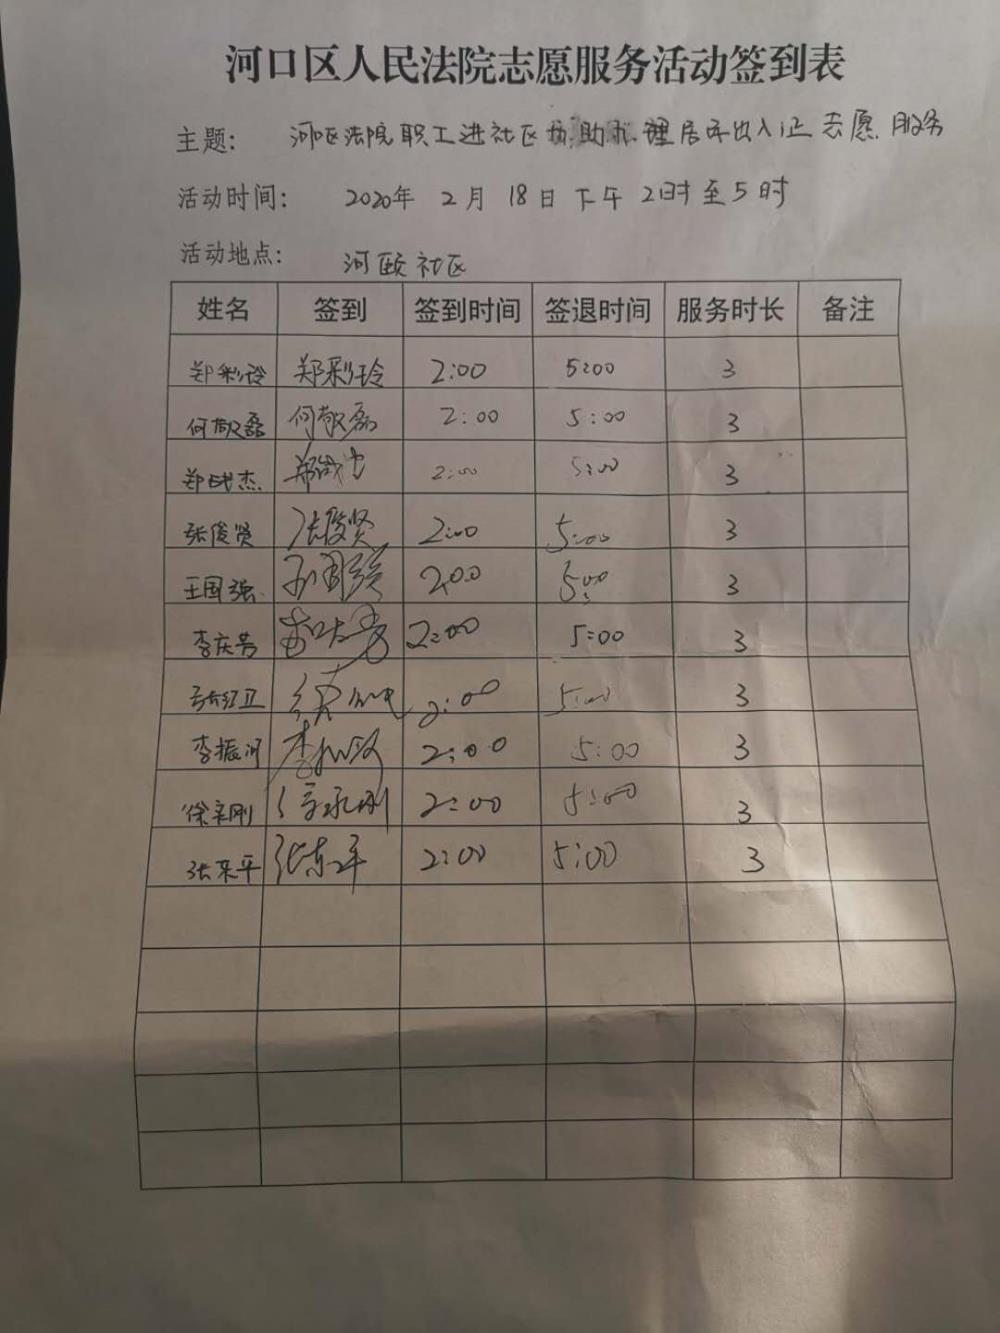 河口区人民法院志愿服务活动签到表
主题: 河区法院职工进社区协助办理居民出入证志愿服务
活动时间: 2020年 2月 18日 下午 2时至5时
活动地点: 河颐社区
姓名 签到 签到时间 签退时间 服务时长 备注
郑彩玲 郑彩玲 2:00 5:00 3
何敬磊 何敬磊 2:00 5:00 3
郑成杰 2:00 5:00 3
张俊贤 张俊贤 2:00 5:00 3
王国强 王国强 2:00 5:00 3
李庆芳 2:00 5:00 3
2:00 5:00 3
李振河 李振河 2:00 5:00 3
2:00 5:00 3
张东平 张东平 2:00 5:00 3